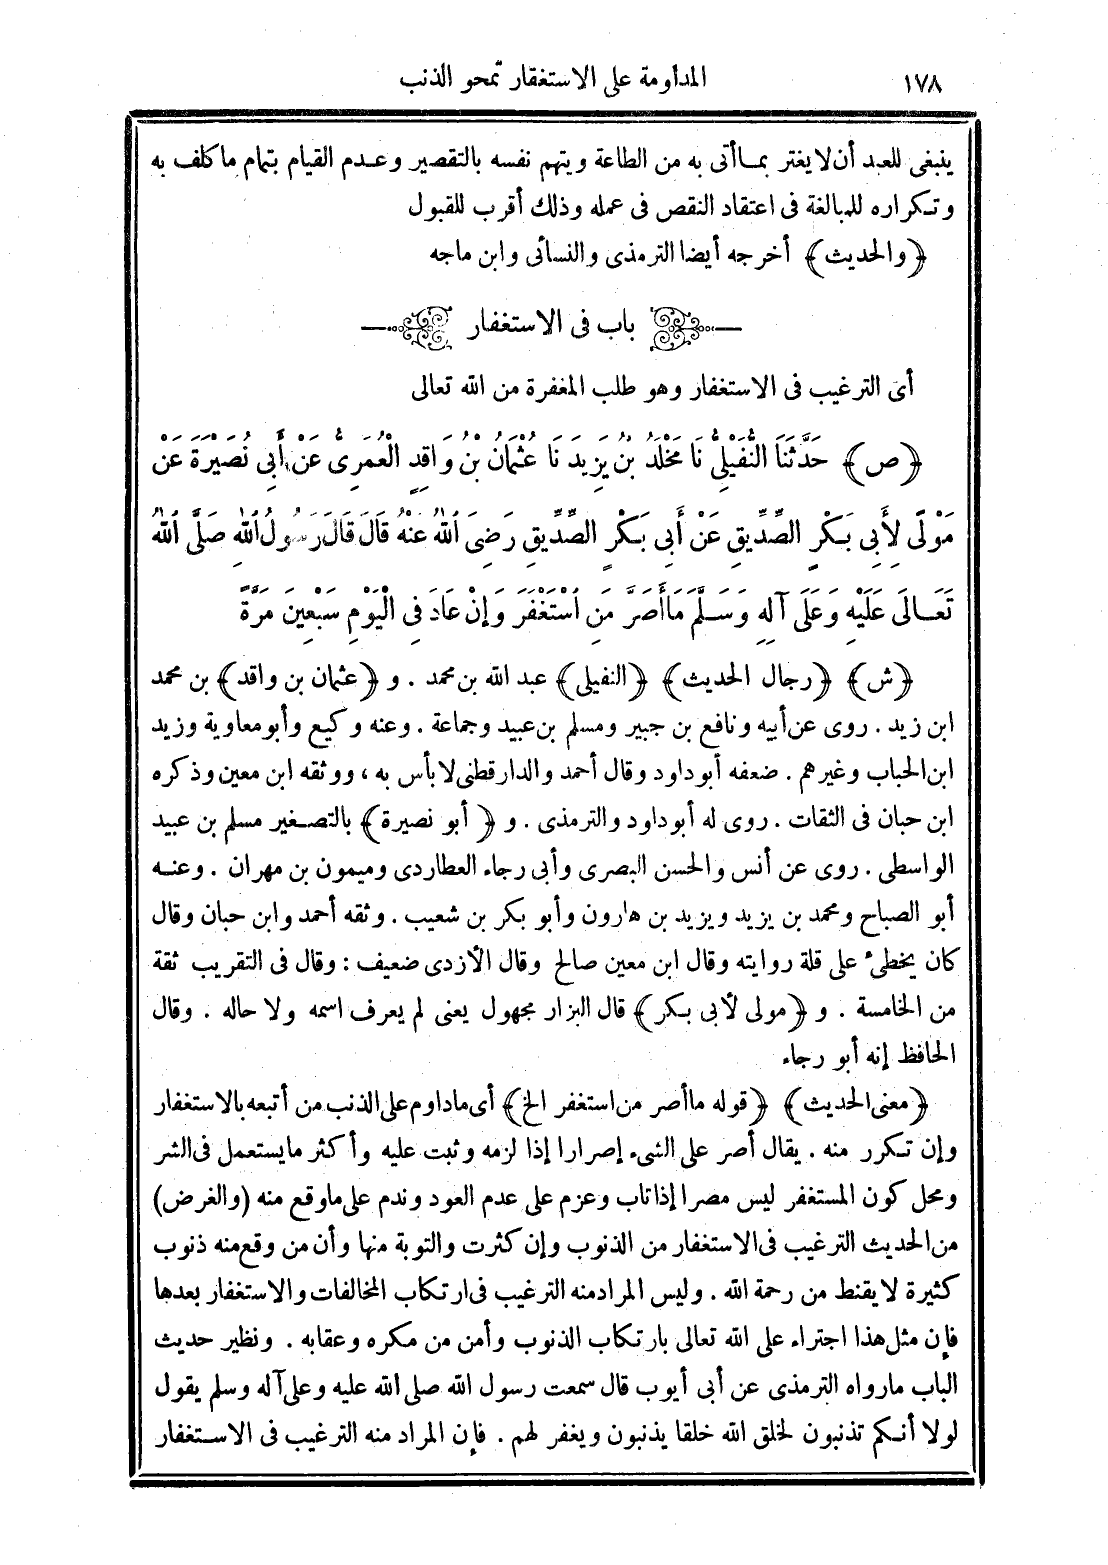 ١٧٨ المداومة على الاستغفار تمحو الذنب
ينبغى للعبد أن لا يغتر بما أتى به من الطاعة ويتهم نفسه بالتقصير وعدم القيام بتمام ما كلف به
وتكراره للمبالغة فى اعتقاد النقص فى عمله وذلك أقرب للقبول
﴿والحديث﴾ أخرجه أيضا الترمذى والنسائى وابن ماجه
باب فى الاستغفار
أى الترغيب فى الاستغفار وهو طلب المغفرة من الله تعالى
﴿ص﴾ حَدَّثَنَا النُّفَيْلِىُّ نَا مَخْلَدُ بْنُ يَزِيدَ نَا عُثْمَانُ بْنُ وَاقِدٍ الْعُمَرِىُّ عَنْ أَبِى نُصَيْرَةَ عَنْ
مَوْلًى لِأَبِى بَكْرٍ الصِّدِّيقِ عَنْ أَبِى بَكْرٍ الصِّدِّيقِ رَضِىَ اللهُ عَنْهُ قَالَ قَالَ رَسُولُ اللهِ صَلَّى اللهُ
تَعَالَى عَلَيْهِ وَعَلَى آلِهِ وَسَلَّمَ مَا أَصَرَّ مَنِ اسْتَغْفَرَ وَإِنْ عَادَ فِى الْيَوْمِ سَبْعِينَ مَرَّةً
﴿ش﴾ ﴿رجال الحديث﴾ ﴿النفيلى﴾ عبد الله بن محمد . و ﴿عثمان بن واقد﴾ بن محمد
ابن زيد . روى عن أبيه ونافع بن جبير ومسلم بن عبيد وجماعة . وعنه وكيع وأبو معاوية وزيد
ابن الحباب وغيرهم . ضعفه أبو داود وقال أحمد والدارقطنى لا بأس به ، ووثقه ابن معين وذكره
ابن حبان فى الثقات . روى له أبو داود والترمذى . و ﴿أبو نصيرة﴾ بالتصغير مسلم بن عبيد
الواسطى . روى عن أنس والحسن البصرى وأبى رجاء العطاردى وميمون بن مهران . وعنه
أبو الصباح ومحمد بن يزيد ويزيد بن هارون وأبو بكر بن شعيب . وثقه أحمد وابن حبان وقال
كان يخطئ على قلة روايته وقال ابن معين صالح وقال الأزدى ضعيف : وقال فى التقريب ثقة
من الخامسة . و ﴿مولى لأبى بكر﴾ قال البزار مجهول يعنى لم يعرف اسمه ولا حاله . وقال
الحافظ إنه أبو رجاء
﴿معنى الحديث﴾ ﴿قوله ما أصر من استغفر الخ﴾ أى ما داوم على الذنب من أتبعه بالاستغفار
وإن تكرر منه . يقال أصر على الشىء إصرارا إذا لزمه وثبت عليه وأكثر ما يستعمل فى الشر
ومحل كون المستغفر ليس مصرا إذا تاب وعزم على عدم العود وندم على ما وقع منه (والغرض)
من الحديث الترغيب فى الاستغفار من الذنوب وإن كثرت والتوبة منها وأن من وقع منه ذنوب
كثيرة لا يقنط من رحمة الله . وليس المراد منه الترغيب فى ارتكاب المخالفات والاستغفار بعدها
فإن مثل هذا اجتراء على الله تعالى بارتكاب الذنوب وأمن من مكره وعقابه . ونظير حديث
الباب ما رواه الترمذى عن أبى أيوب قال سمعت رسول الله صلى الله عليه وعلى آله وسلم يقول
لولا أنكم تذنبون لخلق الله خلقا يذنبون ويغفر لهم . فإن المراد منه الترغيب فى الاستغفار